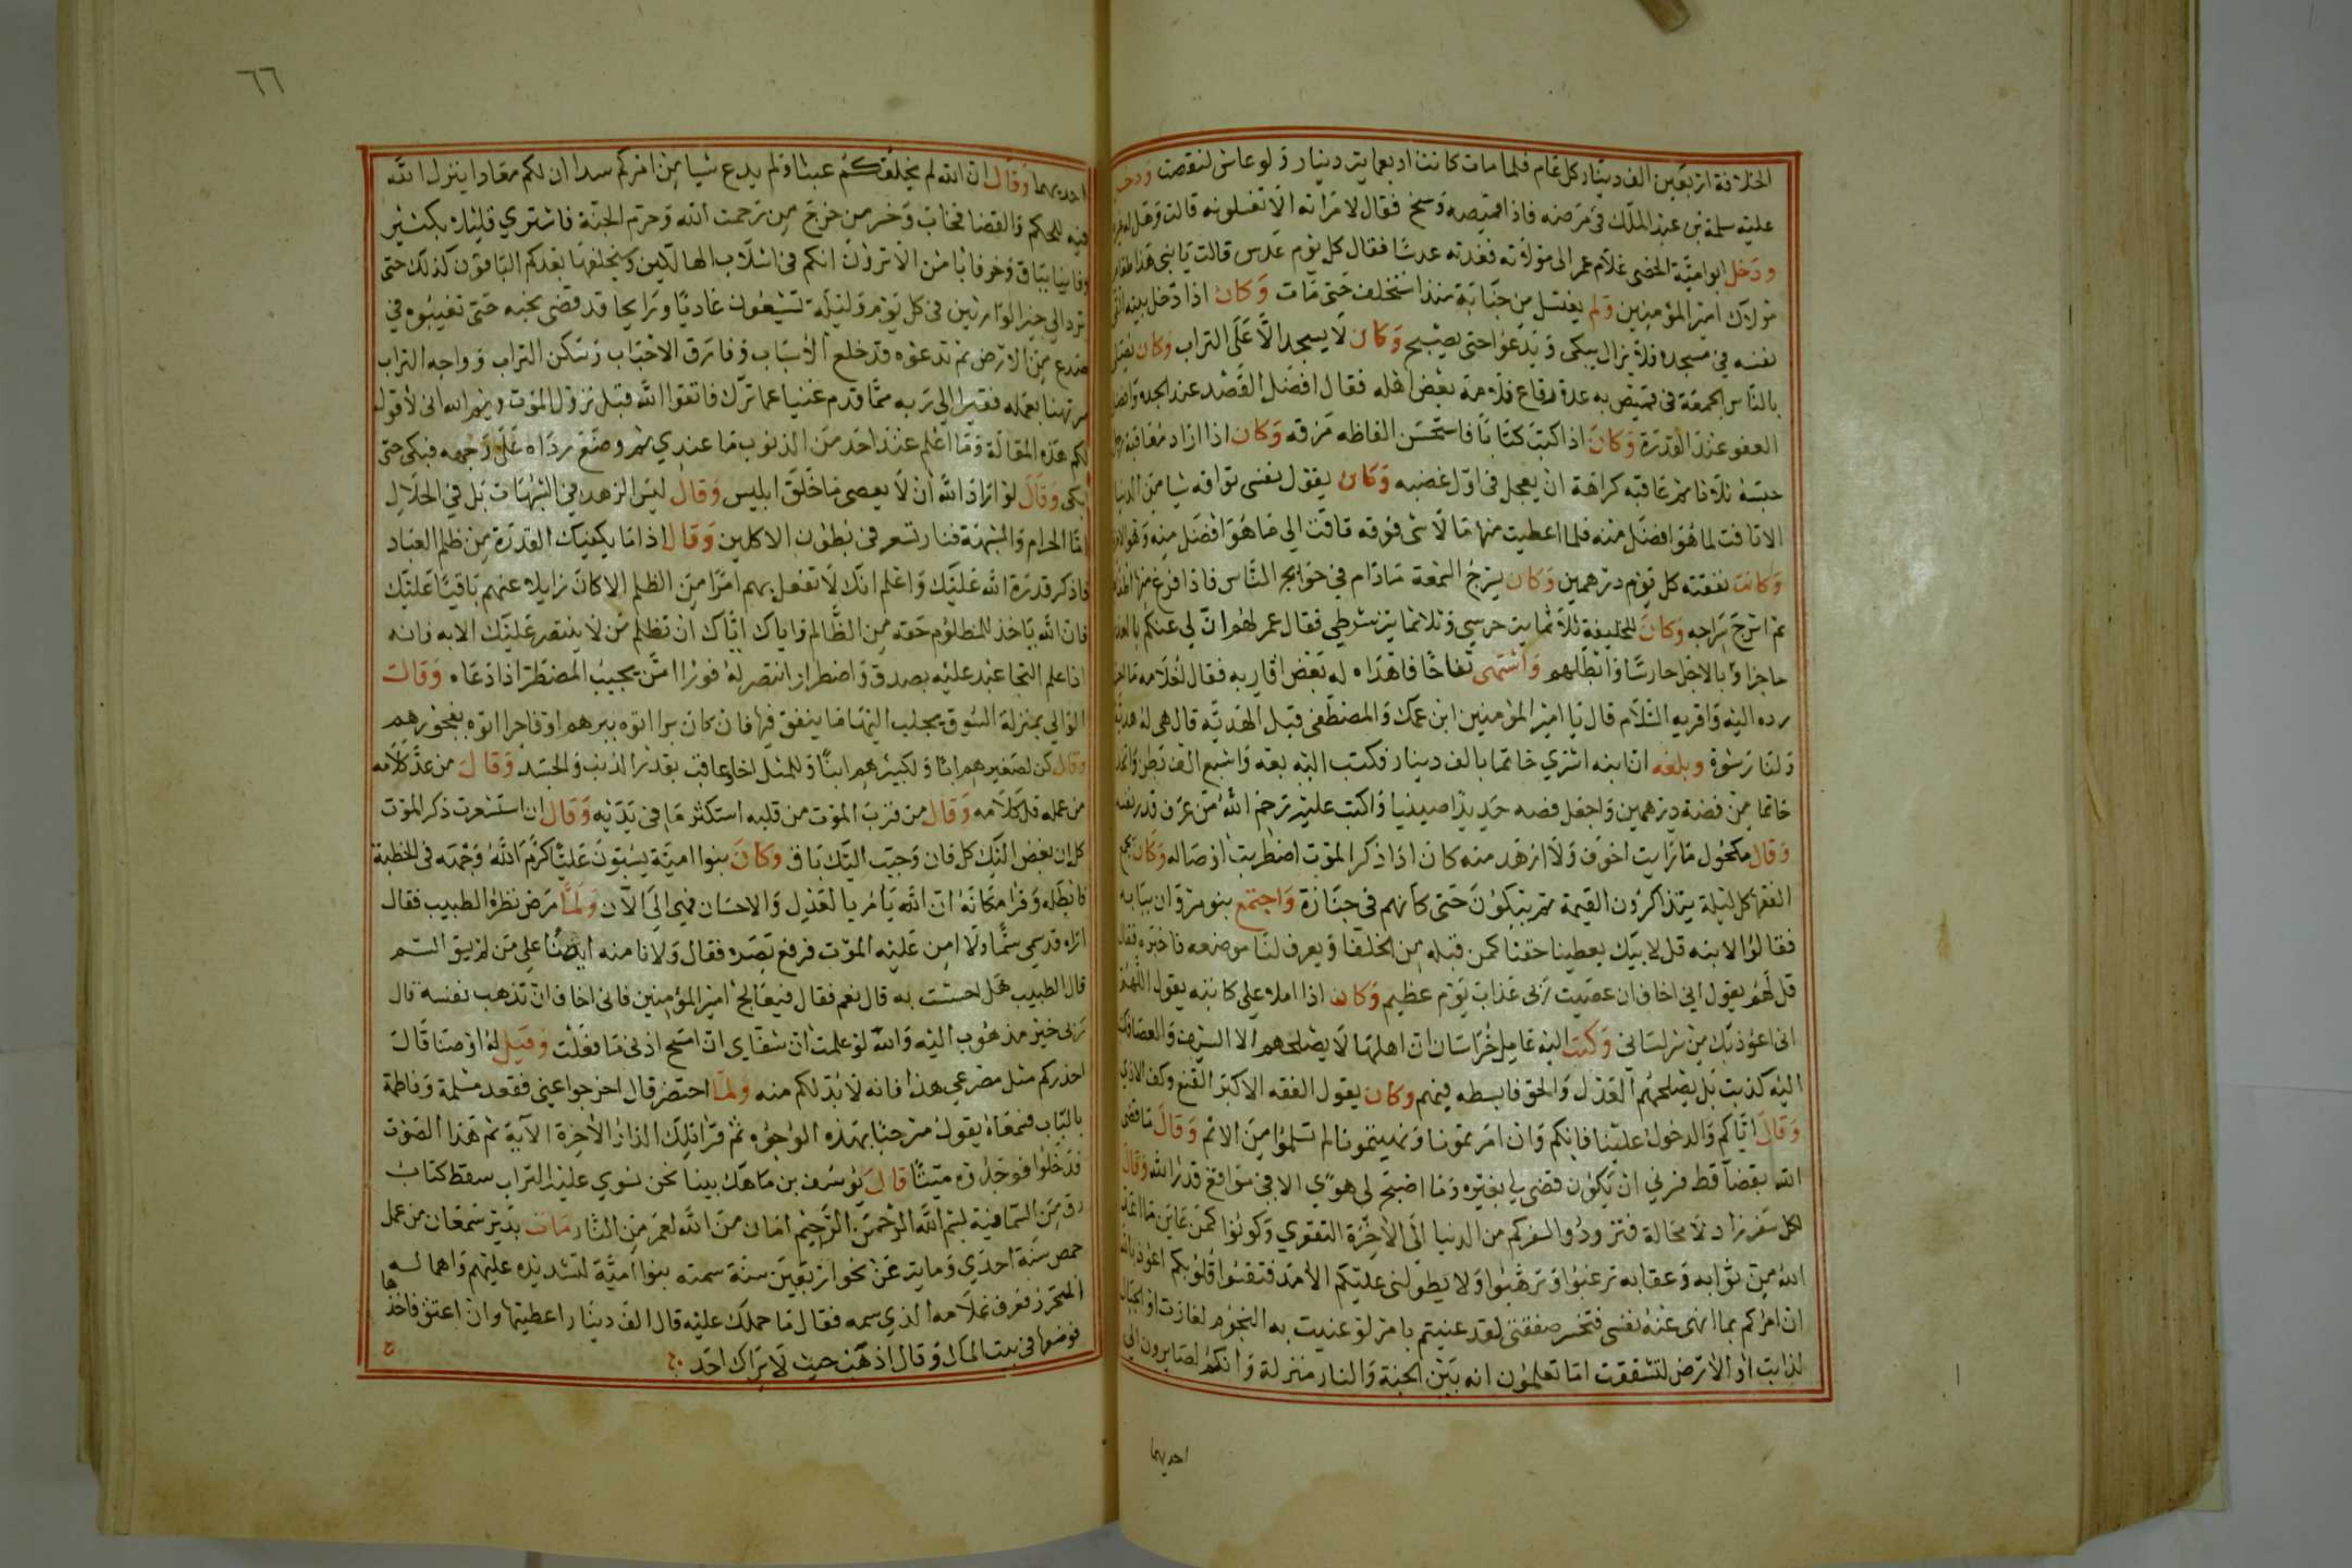 الخلافة اربعين الف دينار كل عام فلما مات كانت اربعماية دينار ولو عاش لنقصت ودخل
عليه سلمة بن عبد الملك في مرضه فاذا قميصه وسخ فقال لامراته الا تغسلونه قالت وهل له غيره
ودخل ابو امية الخصي غلام عمر الى مولاته فغدته عدسا فقال كل يوم عدس قالت يا بني هذا طعام
مولاك امير المؤمنين ولم يغتسل من جنابة منذ استخلف حتى مات وكان اذا دخل بيته القى
نفسه في مسجده فلا يزال يبكي ويدعوا حتى يصبح وكان لا يسجد الا على التراب وكان يصلي
بالناس الجمعة في قميص به عدة رقاع فلامه بعض اهله فقال افضل القصد عند الجدة وافضل
العفو عند القدرة وكان اذا كتب كتابا فاستحسن الفاظه مزقه وكان اذا اراد معاقبة رجل
حبسه ثلاثا ثم عاقبه كراهة ان يعجل في اول غضبه وكان يقول نفسي تواقه شيا من الدنيا
الا تاقت لما هو افضل منه فلما اعطيت منها ما لا شي فوقه تاقت الي ما هو افضل منه وهو الاخرة
وكانت نفقته كل يوم درهمين وكان يسرج الشمعة مادام في حوايج الناس فاذا فرغ منها اطفاها
ثم اسرج سراجه وكان للخليفة ثلاثماية حرسي وثلاثماية شرطي فقال عمر لهم ان لي عنكم بالقدر
حاجزا وبالاجل حارسا وابطلهم واشتهى تفاحا فاهداه له بعض اقاربه فقال لغلامه ما
رده اليه واقريه السلام قال يا امير المؤمنين ابن عمك والمصطفى قبل الهدية قال هي له هدية
ولنا رشوة وبلغه ان ابنه اشتري خاتما بالف دينار فكتب اليه بعه واشبع الف بطن واتخذ
خاتما من فضة درهمين واجعل فصه حديدا صينيا واكتب عليه رحم الله من عرف قدر نفسه
وقال مكحول ما رايت اخوف ولا ازهد منه كان اذا ذكر الموت اضطربت اوصاله وكان يجمع
الفقها كل ليلة يتذاكرون القيمة ثم يبكون حتى كانهم في جنازة واجتمع بنو مروان ببابه
فقالوا لابنه قل لابيك يعطينا حقنا كمن قبله من الخلفا ويعرف لنا موضعه فاخبره فقال
قل لهم يقول اني اخاف ان عصيت ربي عذاب يوم عظيم وكان اذا املا علي كاتبه يقول اللهم
اني اعوذ بك من شر لساني وكتب اليه عامل خراسان ان اهلها لا يصلحهم الا السيف والعصا فكتب
اليه كذبت بل يصلحهم العدل والحق فابسطه فيهم وكان يقول الفقه الاكبر القنع وكف الاذي
وقال اياكم والدخول علينا فانكم وان امرتمونا ونهيتمونا لم تسلموا من الاثم وقال ما قضى
الله بقضآ قط فسرني ان يكون قضى لي بغيره وما اصبح لي هوى الا في مواقع قدر الله وقال
لكل سفر زاد لا محالة فتزودوا لسفركم من الدنيا الى الاخرة التقوي وكونوا كمن عاين ما اعد
الله من ثوابه وعقابه ترغبوا وترهبوا ولا يطولن عليكم الامد فتقسوا قلوبكم اعوذ بالله
ان امركم بما انهى عنه نفسي فتخسر صفقتي لقد عنيتم بامر لو عنيت به النجوم لغارت او الجبال
لذابت او الارض لتشققت اما تعلمون انه بين الجنة والنار منزلة وانكم لصايرون الي
احديهما
٦٦
احديهما وقال ان الله لم يخلقكم عبثا ولم يدع شيا من امركم سدا ان لكم معادا ينزل الله
فيه للحكم والقضا فخاب وخسر من خرج من رحمت الله وحرم الجنة فاشتري قليلا بكثير
وفانيا بباق وخوفا بامن الا ترون انكم في اسلاب الهالكين وسيخلفها بعدكم الباقون كذلك حتى
ترد الي خير الوارثين في كل يوم وليلة تشيعون غاديا ورايحا قد قضى نحبه حتى تغيبوه في
صدع من الارض ثم تدعوه قد خلع الاسباب وفارق الاحباب وسكن التراب وواجه التراب
مرتهنا بعمله فقيرا الي ربه مما قدم غنيا عما ترك فاتقوا الله قبل نزول الموت وايم الله اني لاقول
لكم هذه المقالة وما اعلم عند احد من الذنوب ما عندي ثم وضع رداه على وجهه فبكى حتى
ابكى وقال لو اراد الله ان لا يعصى ما خلق ابليس وقال ليس الزهد في الشبهات بل في الحلال
اما الحرام والشبهة فنار تسعر في بطون الاكلين وقال اذا ما يكفيك القدرة من ظلم العباد
فاذكر قدرة الله عليك واعلم انك لا تفعل بهم امرا من الظلم الا كان زايلا عنهم باقيا عليك
فان الله ياخذ للمظلوم حقه من الظالم واياك اياك ان تظلم من لا ينتصر عليك الا به فانه
اذا علم التجا عبد عليه بصدق واضطرار انتصر له فورا امن يجيب المضطر اذا دعاه وقالت
الوالي بمنزلة السوق يجلب اليها ما ينفق فيها فان كان برا اتوه ببرهم او فاجرا اتوه بفجورهم
وقال كن لصغيرهم ابا ولكبيرهم ابنا وللمثل اخا وعاقب بقدر الذنب والجسد وقال من عد كلامه
من عمله قل كلامه وقال من قرب الموت من قلبه استكثر ما في يديه وقال ان استشعرت ذكر الموت
كل ان بغض اليك كل فان وحبب اليك باق وكان بنوا امية يسبون عليا كرم الله وجهه في الخطبة
فابطله وقرا مكانه ان الله يامر بالعدل والاحسان فهي الى الآن ولما مرض نظره الطبيب فقال
اراه قد سقي سما ولا امن عليه الموت فرفع بصره فقال ولا نامنه ايضا علي من لم يسق السم
قال الطبيب هل احسست به قال نعم فقال فتعالج امير المؤمنين فاني اخاف ان تذهب نفسه قال
ربي خير مذهوب اليه والله لو علمت ان شفاي ان امسح اذني ما فعلت وقيل له اوصنا قال
احذركم مثل مصرعي هذا فانه لا بد لكم منه ولما احتضر قال اخرجوا عني فقعد مسلمة وفاطمة
بالباب فسمعاه يقول مرحبا بهذه الوجوه ثم قرا تلك الدار الاخرة الآية ثم هذا الصوت
فدخلوا فوجدوه ميتا قال يوسف بن ماهك بينا نحن نسوي عليه التراب سقط كتاب
رق من السما فيه بسم الله الرحمن الرحيم امان من الله لعمر من النار مات بدير سمعان من عمل
حمص سنة احدي وماية عن نحو اربعين سنة سمته بنوا امية لتشديده عليهم واهماله
التحرز فعرف غلامه الذي سمه فقال ما حملك عليه قال الف دينار اعطيتها وان اعتق فاخذها
فوضعها في بيت المال وقال اذهب حيث لا يراك احد